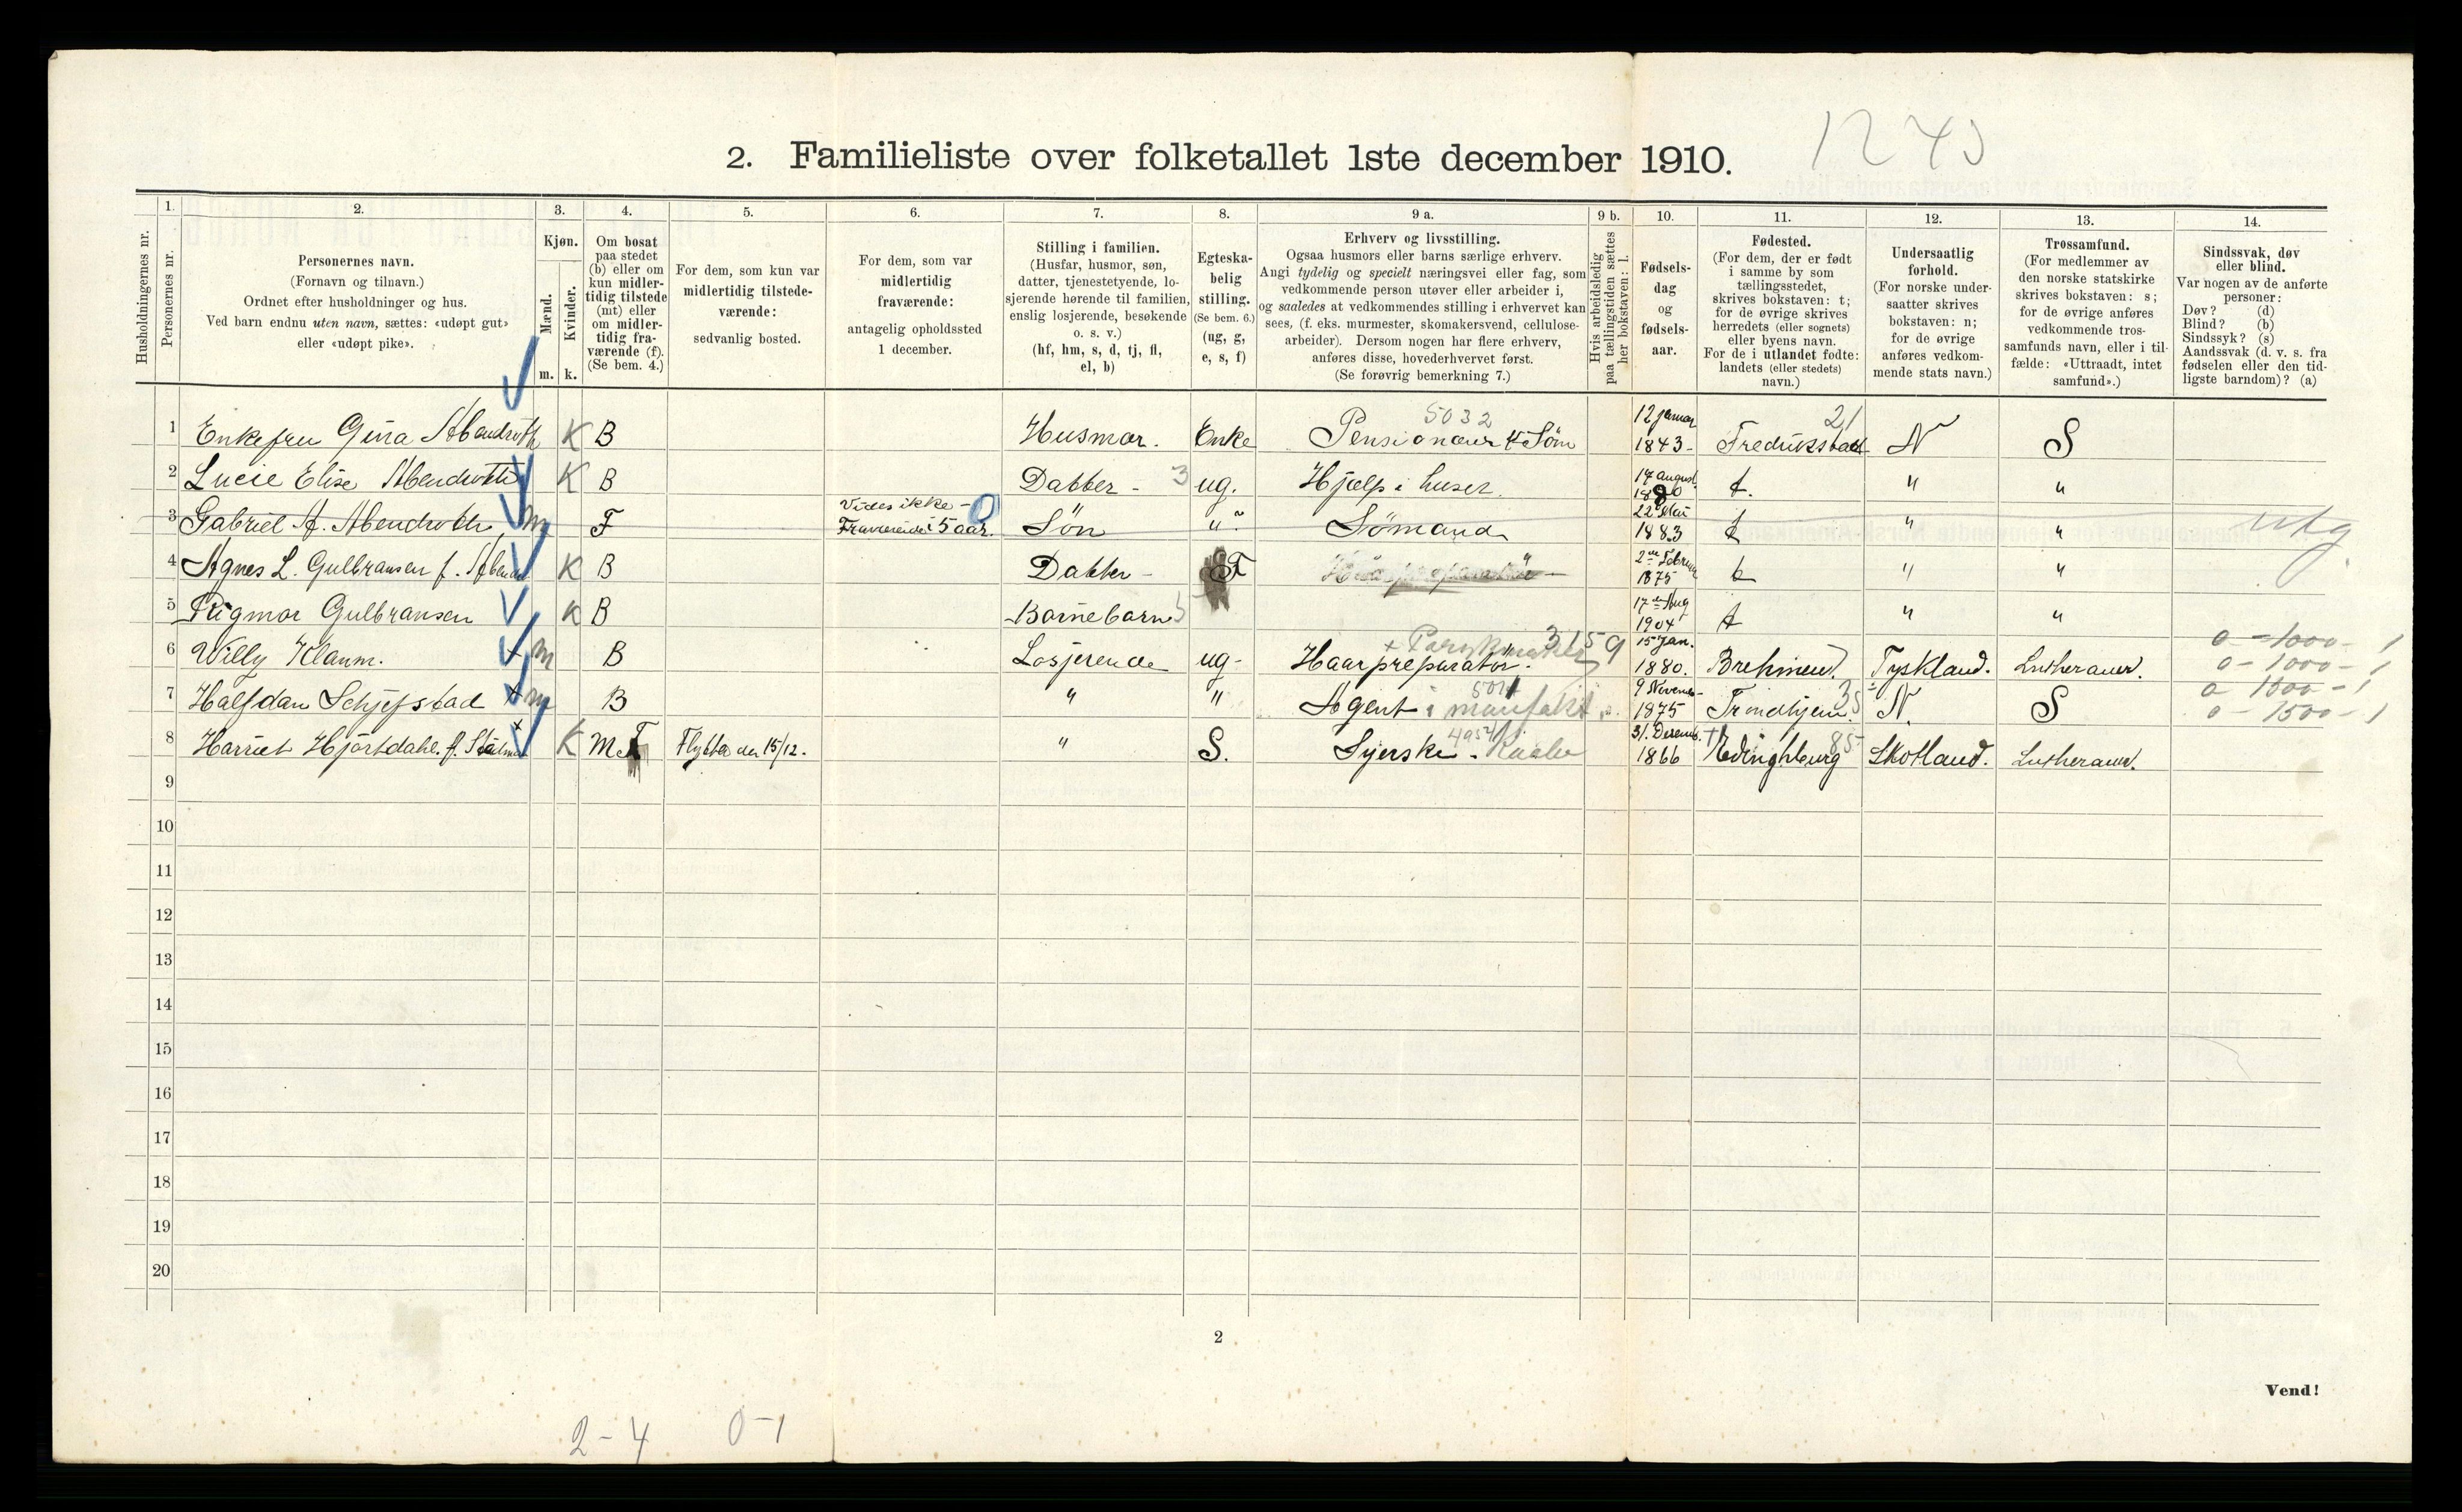 1243
2. Familieliste over folketallet 1ste december 1910.
Husholdningernes nr.
1.
Personernes nr.
2.
Personernes navn.
(Fornavn og tilnavn.)
Ordnet efter husholdninger og hus.
Ved barn endnu uten navn, sættes: «udøpt gut»
eller «udøpt pike».
3.
Kjøn.
Mænd.
Kvinder.
m. k.
4.
Om bosat
paa stedet
(b) eller om
kun midler-
tidig tilstede
(mt) eller
om midler-
tidig fra-
værende (f).
(Se bem. 4.)
5.
For dem, som kun var
midlertidig tilstede-
værende:
sedvanlig bosted.
6.
For dem, som var
midlertidig
fraværende:
antagelig opholdssted
1 december.
7.
Stilling i familien.
(Husfar, husmor, søn,
datter, tjenestetyende, lo-
sjerende hørende til familien,
enslig losjerende, besøkende
o. s. v.)
(hf, hm, s, d, tj, fl,
el, b)
8.
Egteska-
belig
stilling.
(Se bem. 6.)
(ug, g,
e, s, f)
9 a.
Erhverv og livsstilling.
Ogsaa husmors eller barns særlige erhverv.
Angi tydelig og specielt næringsvei eller fag, som
vedkommende person utøver eller arbeider i,
og saaledes at vedkommendes stilling i erhvervet kan
sees, (f. eks. murmester, skomakersvend, cellulose-
arbeider). Dersom nogen har flere erhverv,
anføres disse, hovederhvervet først.
(Se forøvrig bemerkning 7.)
9 b.
Hvis arbeidsledig
paa tællingstiden sættes
her bokstaven: l.
10.
Fødsels-
dag
og
fødsels-
aar.
11.
Fødested.
(For dem, der er født
i samme by som
tællingsstedet,
skrives bokstaven: t;
for de øvrige skrives
herredets (eller sognets)
eller byens navn.
For de i utlandet fødte:
landets (eller stedets)
navn.)
12.
Undersaatlig
forhold.
(For norske under-
saatter skrives
bokstaven: n;
for de øvrige
anføres vedkom-
mende stats navn.)
13.
Trossamfund.
(For medlemmer av
den norske statskirke
skrives bokstaven: s;
for de øvrige anføres
vedkommende tros-
samfunds navn, eller i til-
fælde: «Uttraadt, intet
samfund».)
14.
Sindssvak, døv
eller blind.
Var nogen av de anførte
personer:
Døv? (d)
Blind? (b)
Sindssyk? (s)
Aandssvak (d. v. s. fra
fødselen eller den tid-
ligste barndom)? (a)
5032 12 januar 21
1 Enkefru Gina Abendroth K B Husmor. Enke Pensionær 1843- Fredriksstad N S
2 Lucie Elise Abendroth K B Datter - 3 ug. Hjælp i huset. 17 august 1880 t. " "
Vides ikke - 0
3 Gabriel A. Abendroth m F Fraværende i 5 aar. Søn " Sømand 22 Mai 1883 t " " utg
4 Agnes L. Gulbransen f. K B Datter - F 2den Februar 1875 t " "
5 Rigmor Gulbransen K B Barnebarn 17de Aug 1904 t " "
0 - 1000 - 1
+ Parykmaker 3159
6 Willy Klanm. x m B Losjerende ug- Haarpreparatör. 15 Jan. 1880. Brehmen Tyskland. Lutheraner. 0 - 1000 - 1
0 1500 - 1
7 Halfdan Schjefstad x m B " " Agent i manufakt 9 Novemb- 1875 Trondhjem. 35 N. S 0 - 1500 - 1
8 Harriet Hjortdahl. f. K M.T Flytter den 15/12. " S. Syerske - Kaabe 31. Decemb. 1866 Edinghburg 85 Skotland. Lutheraner.
9
10
11
12
13
14
15
16
17
18
19
20
2
Vend!
2-4 0-1